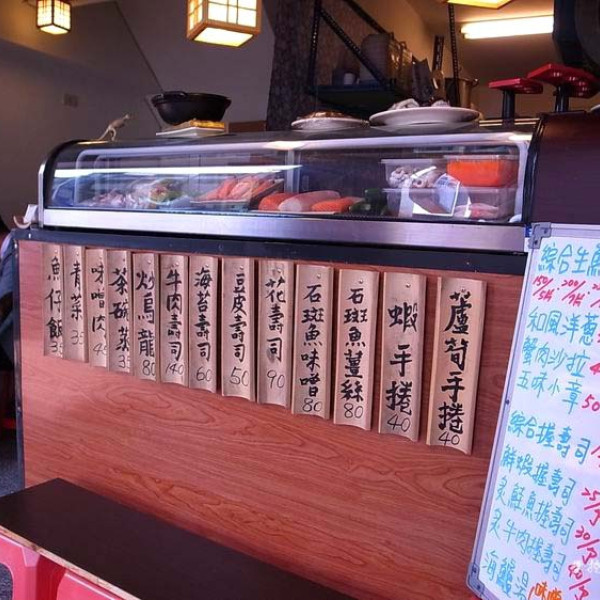 魚仔飯 35
青菜 35
味噌肉 45
茶碗蒸 35
炒烏龍 80
牛肉壽司 140
海苔壽司 60
豆皮壽司 50
花壽司 90
石斑魚味噌 80
石斑魚薑絲 80
蝦手捲 40
蘆筍手捲 40
綜合生魚
和風洋蔥
蟹肉沙拉
五味小章 50
綜合握壽司
鮮蝦握壽司
炙鮭魚握壽司
炙牛肉握壽司
海鹽湯